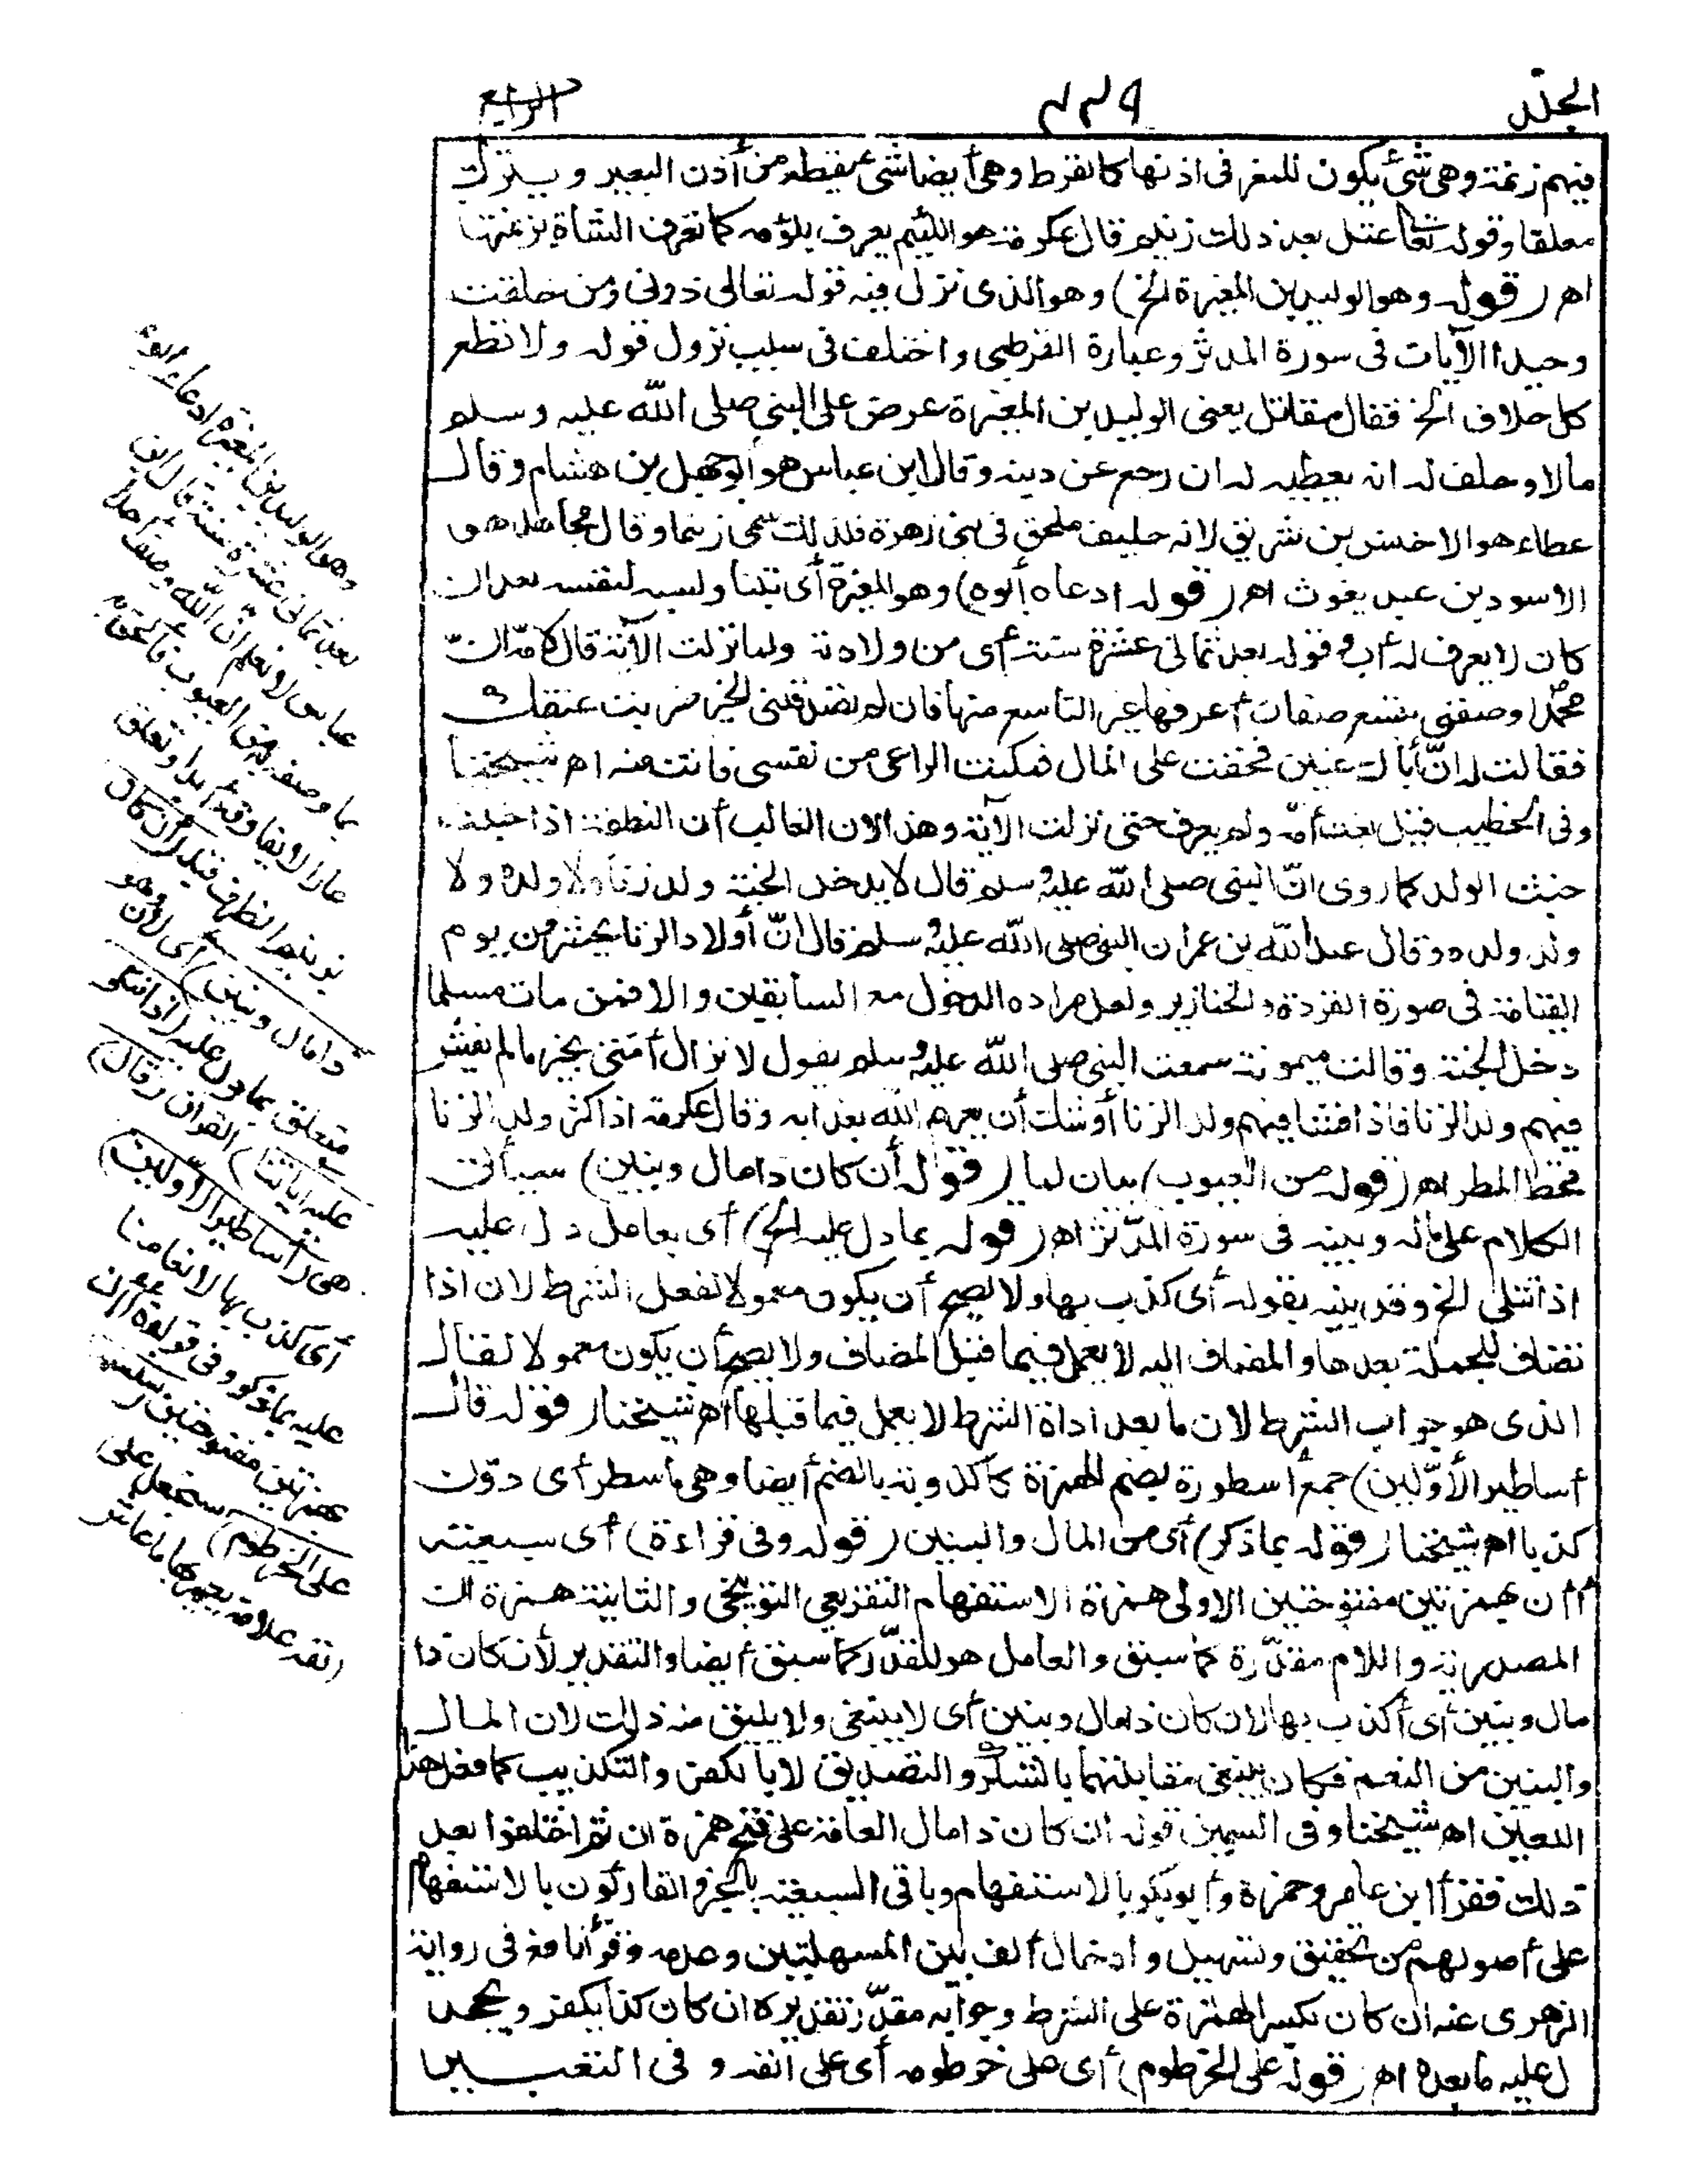 الجلد
٤٣٩
الرابع
فيهم زنمة وهى شئ يكون للمعز فى اذنها كالقرط وهى أيضا شئ يقطع من أذن البعير ويترك
معلقا وقوله تعالى عتل بعد ذلك زنيم قال عكرمة هو اللئيم يعرف بلؤمه كما تعرف الشاة بزنمتها
اهـ (قوله وهو الوليد بن المغيرة الخ) وهو الذى نزل فيه قوله تعالى ذرنى ومن خلقت
وحيدا الآيات فى سورة المدثر وعبارة القرطبى واختلف فى سبب نزول قوله ولا تطع
كل حلاف الخ فقال مقاتل يعنى الوليد بن المغيرة عرض على النبى صلى الله عليه وسلم
مالا وحلف له انه يعطيه له ان رجع عن دينه وقال ابن عباس هو أبو جهل بن هشام وقال
عطاء هو الاخنس بن شريق لانه حليف ملحق فى بنى زهرة فلذلك سمى زنيما وقال مجاهد هو
الاسود بن عبد يغوث اهـ (قوله ادعاه أبوه) وهو المغيرة أى تبناه ونسبه لنفسه بعد ان
كان لا يعرف له أب وقوله بعد ثمانى عشرة سنة أى من ولادته ولما نزلت الآية قال لامه ان
محمدا وصفنى بتسع صفات أعرفها غير التاسع منها فان لم تصدقينى الخبر ضربت عنقك
فقالت له ان أباك عنين فخفت على المال فمكنت الراعى من نفسى فانت منه اهـ شيخنا
وفى الخطيب قيل بغت أمه ولم يعرف حتى نزلت الآية وهذا لان الغالب أن النطفة اذا خبثت
خبث الولد كما روى ان النبى صلى الله عليه وسلم قال لا يدخل الجنة ولد زنا ولا ولده ولا
ولد ولده وقال عبد الله بن عمر ان النبى صلى الله عليه وسلم قال ان أولاد الزنا يحشرون يوم
القيامة فى صورة القردة والخنازير ولعل مراده الدخول مع السابقين والا فمن مات مسلما
دخل الجنة وقالت ميمونة سمعت النبى صلى الله عليه وسلم يقول لا تزال أمتى بخير ما لم يفش
فيهم ولد الزنا فاذا فشا فيهم ولد الزنا أوشك أن يعمهم الله بعذابه وقال عكرمة اذا كثر ولد الزنا
قحط المطر اهـ (قوله من العيوب) بيان لما (قوله أن كان ذا مال وبنين) سيأتى
الكلام على ماله وبنيه فى سورة المدثر اهـ (قوله بما دل عليه الخ) أى بعامل دل عليه
اذا تتلى الخ وقد بينه بقوله أى كذب بها ولا يصح أن يكون معمولا لفعل الشرط لان اذا
تضاف للجملة بعدها والمضاف اليه لا يعمل فيما قبل المضاف ولا يصح أن يكون معمولا لقال
الذى هو جواب الشرط لان ما بعد اداة الشرط لا يعمل فيما قبلها اهـ شيخنا (قوله قال
أساطير الأولين) جمع أسطورة بضم الهمزة كأكذوبة بالضم أيضا وهى ما سطر أى دون
كذبا اهـ شيخنا (قوله بما ذكر) أى من المال والبنين (قوله وفى قراءة) أى سبعية
أأن بهمزتين مفتوحتين الاولى همزة الاستفهام التقريعى التوبيخى والثانية همزة ان
المصدرية واللام مقدرة كما سبق والعامل هو المقدر كما سبق أيضا والتقدير لأن كان ذا
مال وبنين أى أكذب بها لان كان ذا مال وبنين أى لا ينبغى ولا يليق منه ذلك لان المال
والبنين من النعم فكان ينبغى مقابلتهما بالشكر والتصديق لا بالكفر والتكذيب كما فعل هذا
اللعين اهـ شيخنا وفى السمين قوله ان كان ذا مال العامة على فتح همزة ان ثم اختلفوا بعد
ذلك فقرأ ابن عامر وحمزة وأبو بكر بالاستفهام وباقى السبعة بالخبر والقارئون بالاستفهام
على أصولهم من تحقيق وتسهيل وادخال ألف بين المسهلتين وعدمه وقرأ نافع فى رواية
الزهرى عنه ان كان بكسر الهمزة على الشرط وجوابه مقدر تقديره ان كان كذا يكفر ويجحد
دل عليه ما بعده اهـ (قوله على الخرطوم) أى على خرطومه أى على انفه وفى التعبير
وهو الوليد بن المغيرة ادعاه أبوه
بعد ثمانى عشرة سنة قال ابن
عباس لا نعلم ان الله وصف أحدا
بما وصفه به من العيوب فألحق به
عارا لا يفارقه أبدا وتعلق
بزنيم الظرف قبله (أن كان
ذا مال وبنين) أى لأن وهو
متعلق بما دل عليه (اذا تتلى
عليه آياتنا) القرآن (قال)
هى (أساطير الأولين)
أى كذب بها لانعامنا
عليه بما ذكر وفى قراءة أأن
بهمزتين مفتوحتين (سنسمه
على الخرطوم) سنجعل على
انفه علامة يعير بها ما عاش